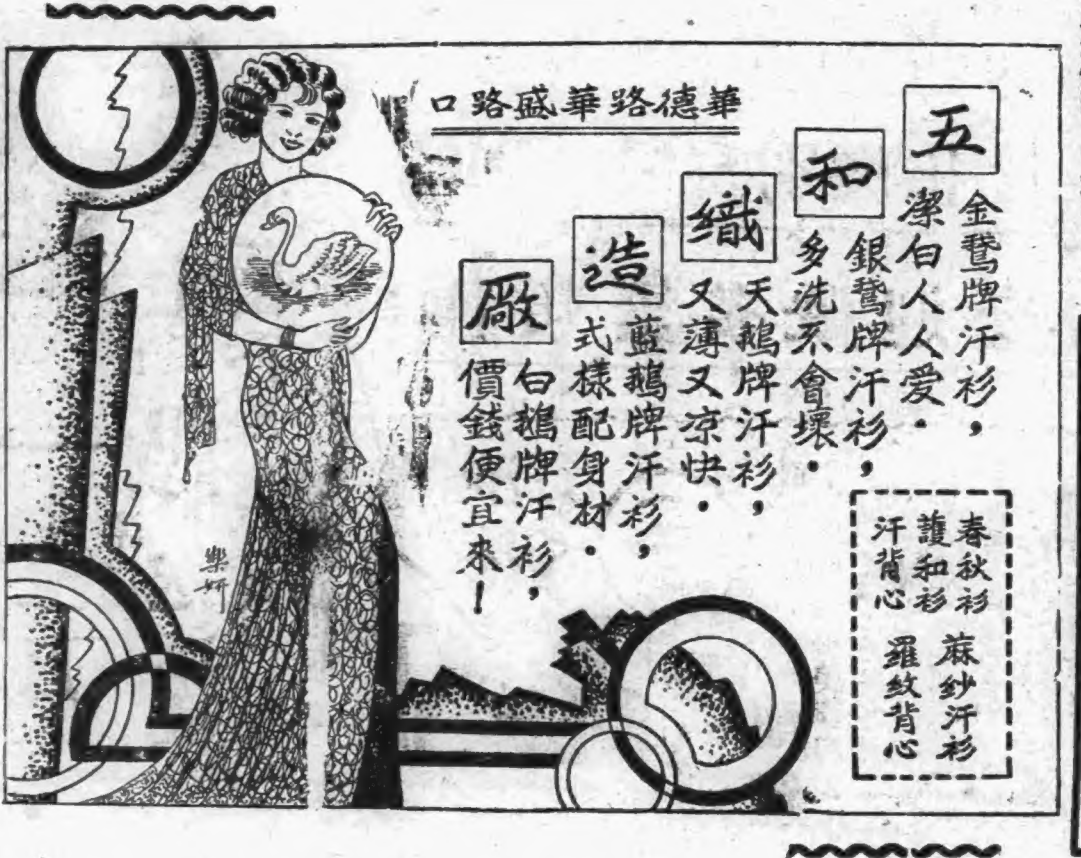 華德路華盛路口
五
和
織
造
廠
金鵞牌汗衫，
潔白人人愛．
銀鵞牌汗衫，
多洗不會壞．
天鵝牌汗衫，
又薄又凉快．
藍鵝牌汗衫，
式樣配身材．
白鵝牌汗衫，
價錢便宜來！
春秋衫
護和衫
汗背心
麻紗汗衫
羅紋背心